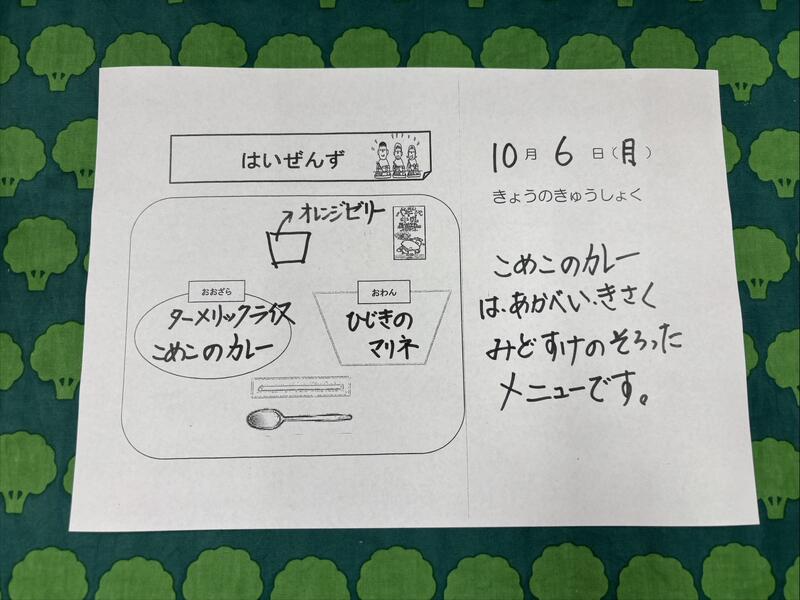 はいぜんず
オレンジゼリー
おおざら
ターメリックライス
こめこのカレー
おわん
ひじきの
マリネ
10月6日(月)
きょうのきゅうしょく
こめこのカレー
は、あかべい・きさく
みどすけのそろった
メニューです。